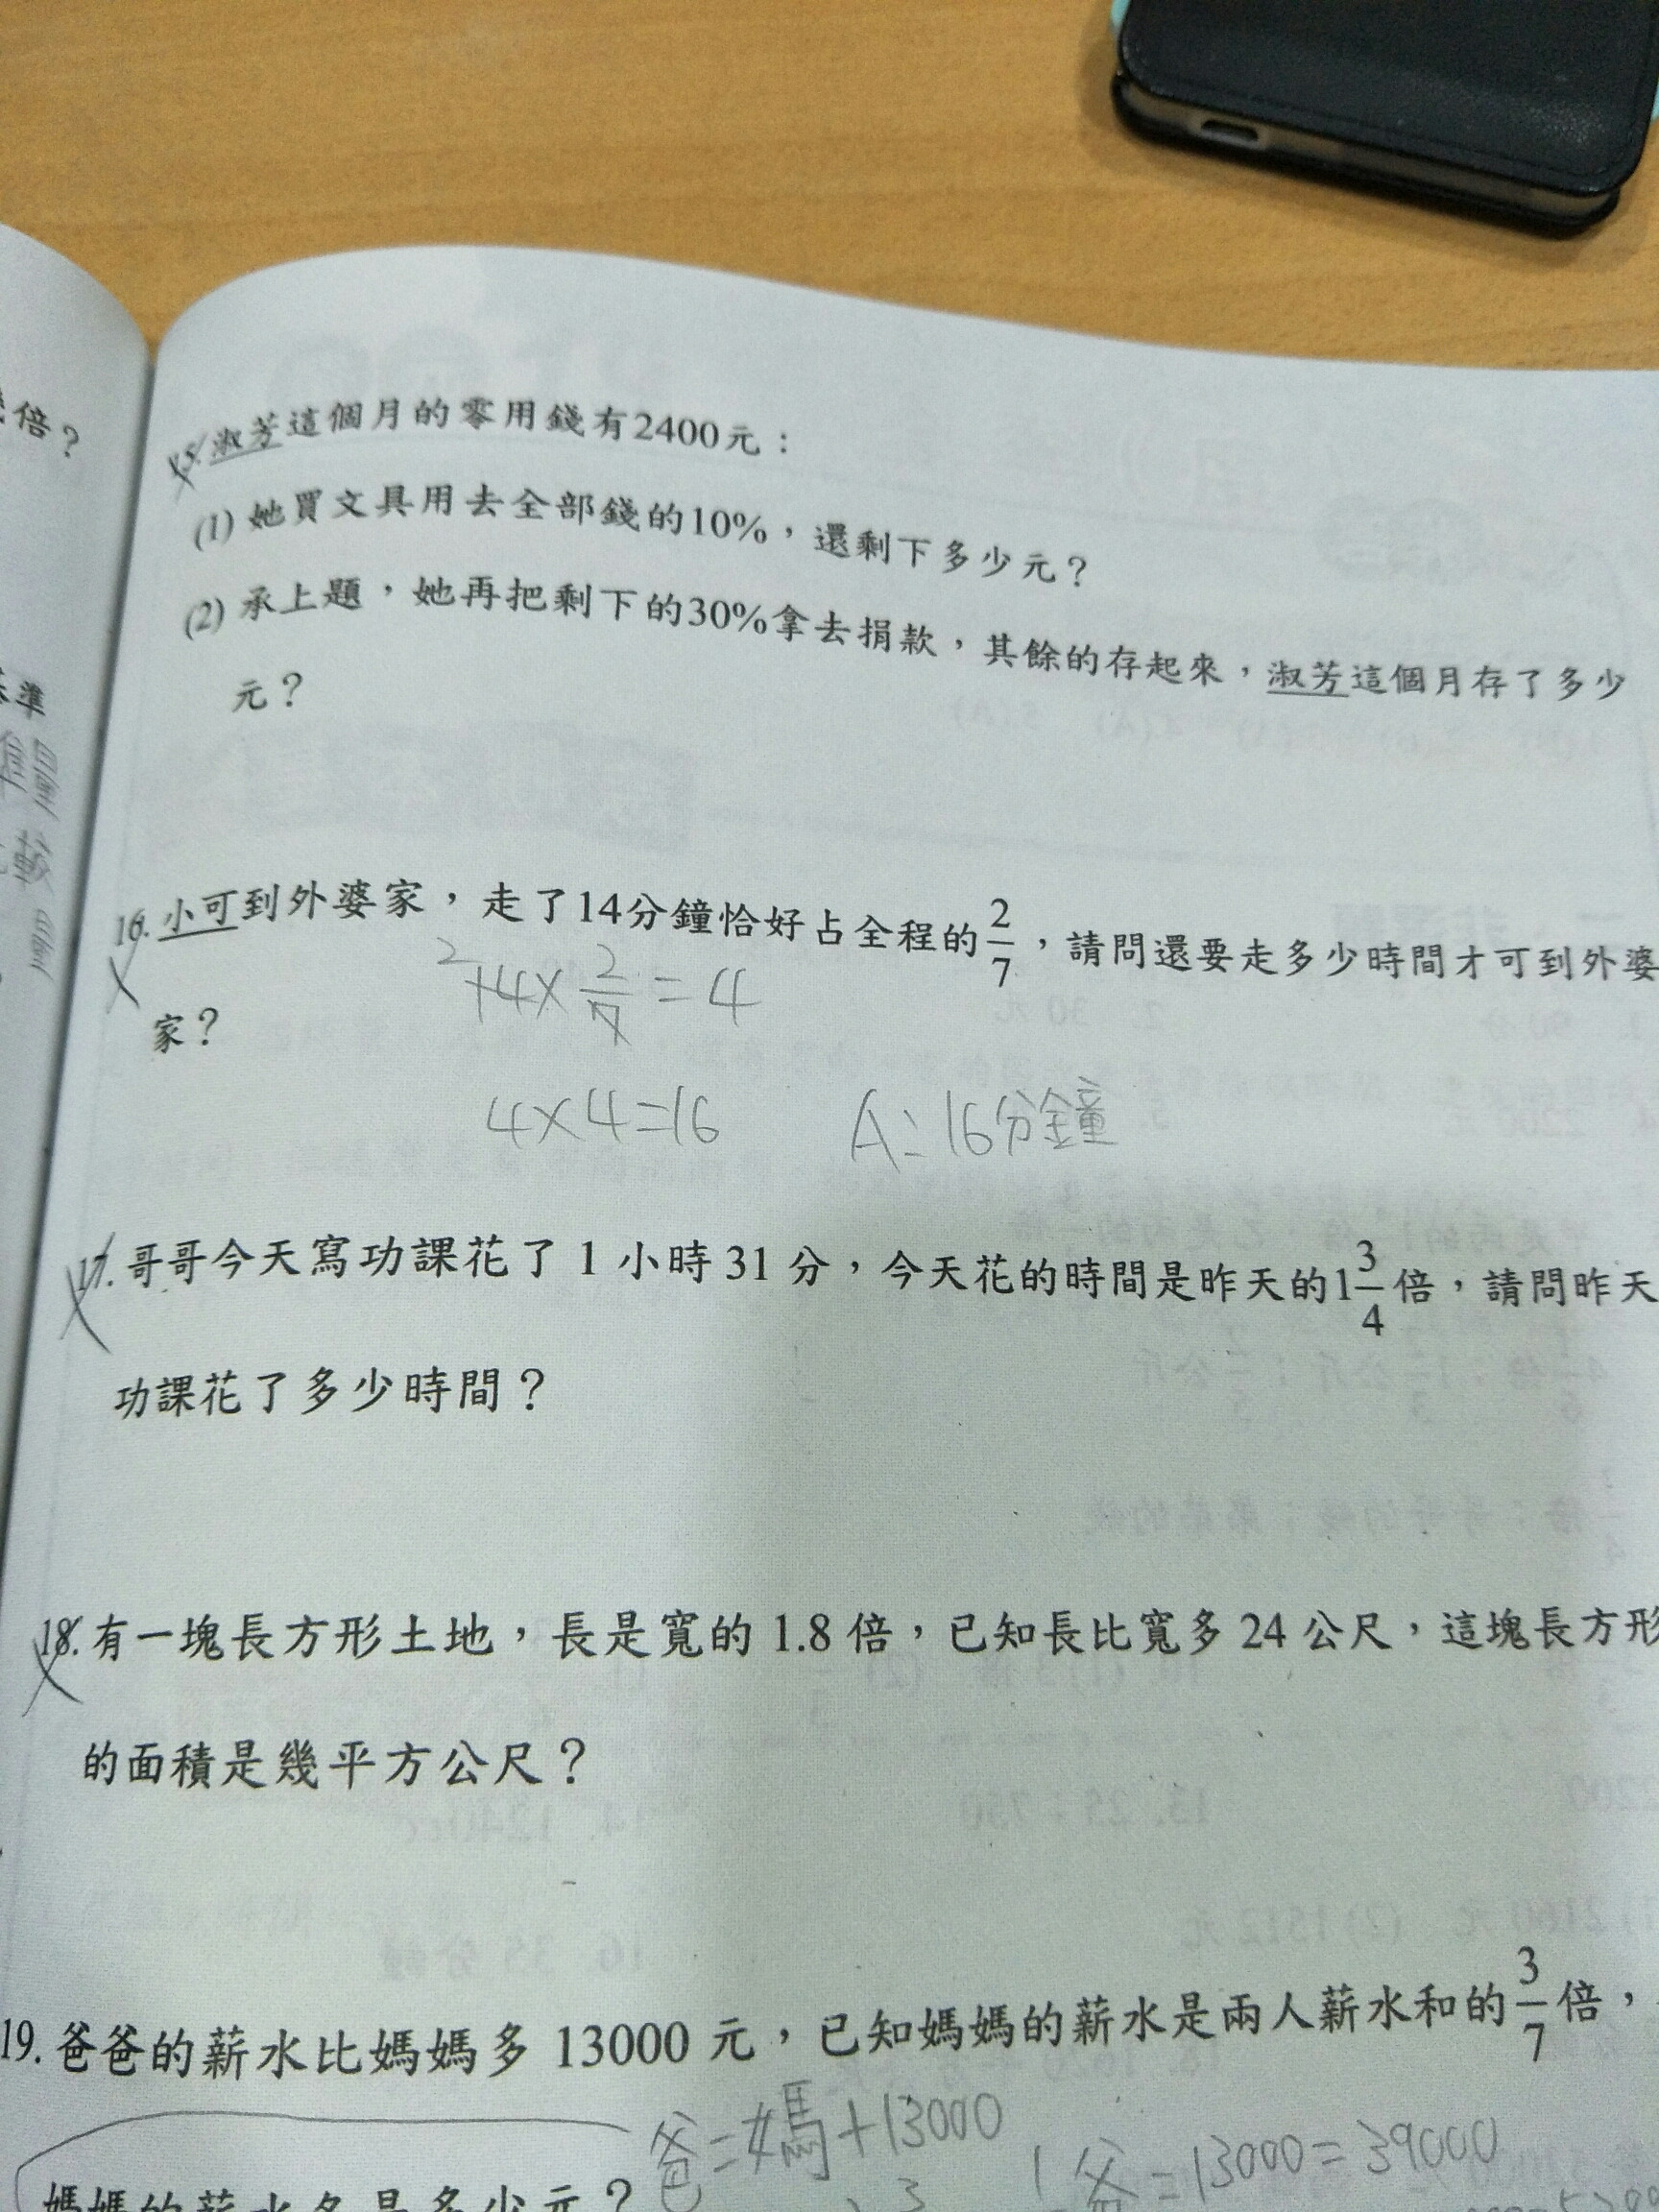 倍？
準
量
較
量
15. 淑芳這個月的零用錢有2400元：
(1) 她買文具用去全部錢的10%，還剩下多少元？
(2) 承上題，她再把剩下的30%拿去捐款，其餘的存起來，淑芳這個月存了多少
元？
16. 小可到外婆家，走了14分鐘恰好占全程的2/7，請問還要走多少時間才可到外婆
家？
2
14×2/7=4
4×4=16 A：16分鐘
17. 哥哥今天寫功課花了 1 小時 31 分，今天花的時間是昨天的1 3/4倍，請問昨天
功課花了多少時間？
18. 有一塊長方形土地，長是寬的 1.8 倍，已知長比寬多 24 公尺，這塊長方形
的面積是幾平方公尺？
19. 爸爸的薪水比媽媽多 13000 元，已知媽媽的薪水是兩人薪水和的3/7倍，
爸=媽+13000
爸=13000=39000
媽媽的薪水各是多少元？